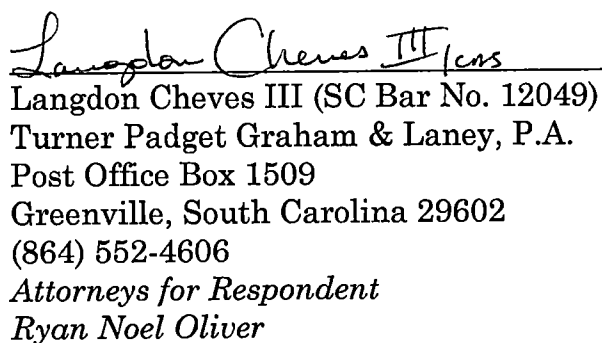 Langdon Cheves III /cns
Langdon Cheves III (SC Bar No. 12049)
Turner Padget Graham & Laney, P.A.
Post Office Box 1509
Greenville, South Carolina 29602
(864) 552-4606
Attorneys for Respondent
Ryan Noel Oliver